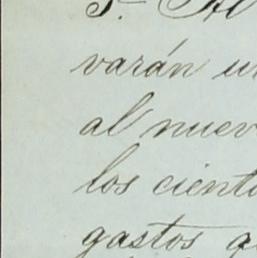 varán un
al nuev
los ciento
gastos q